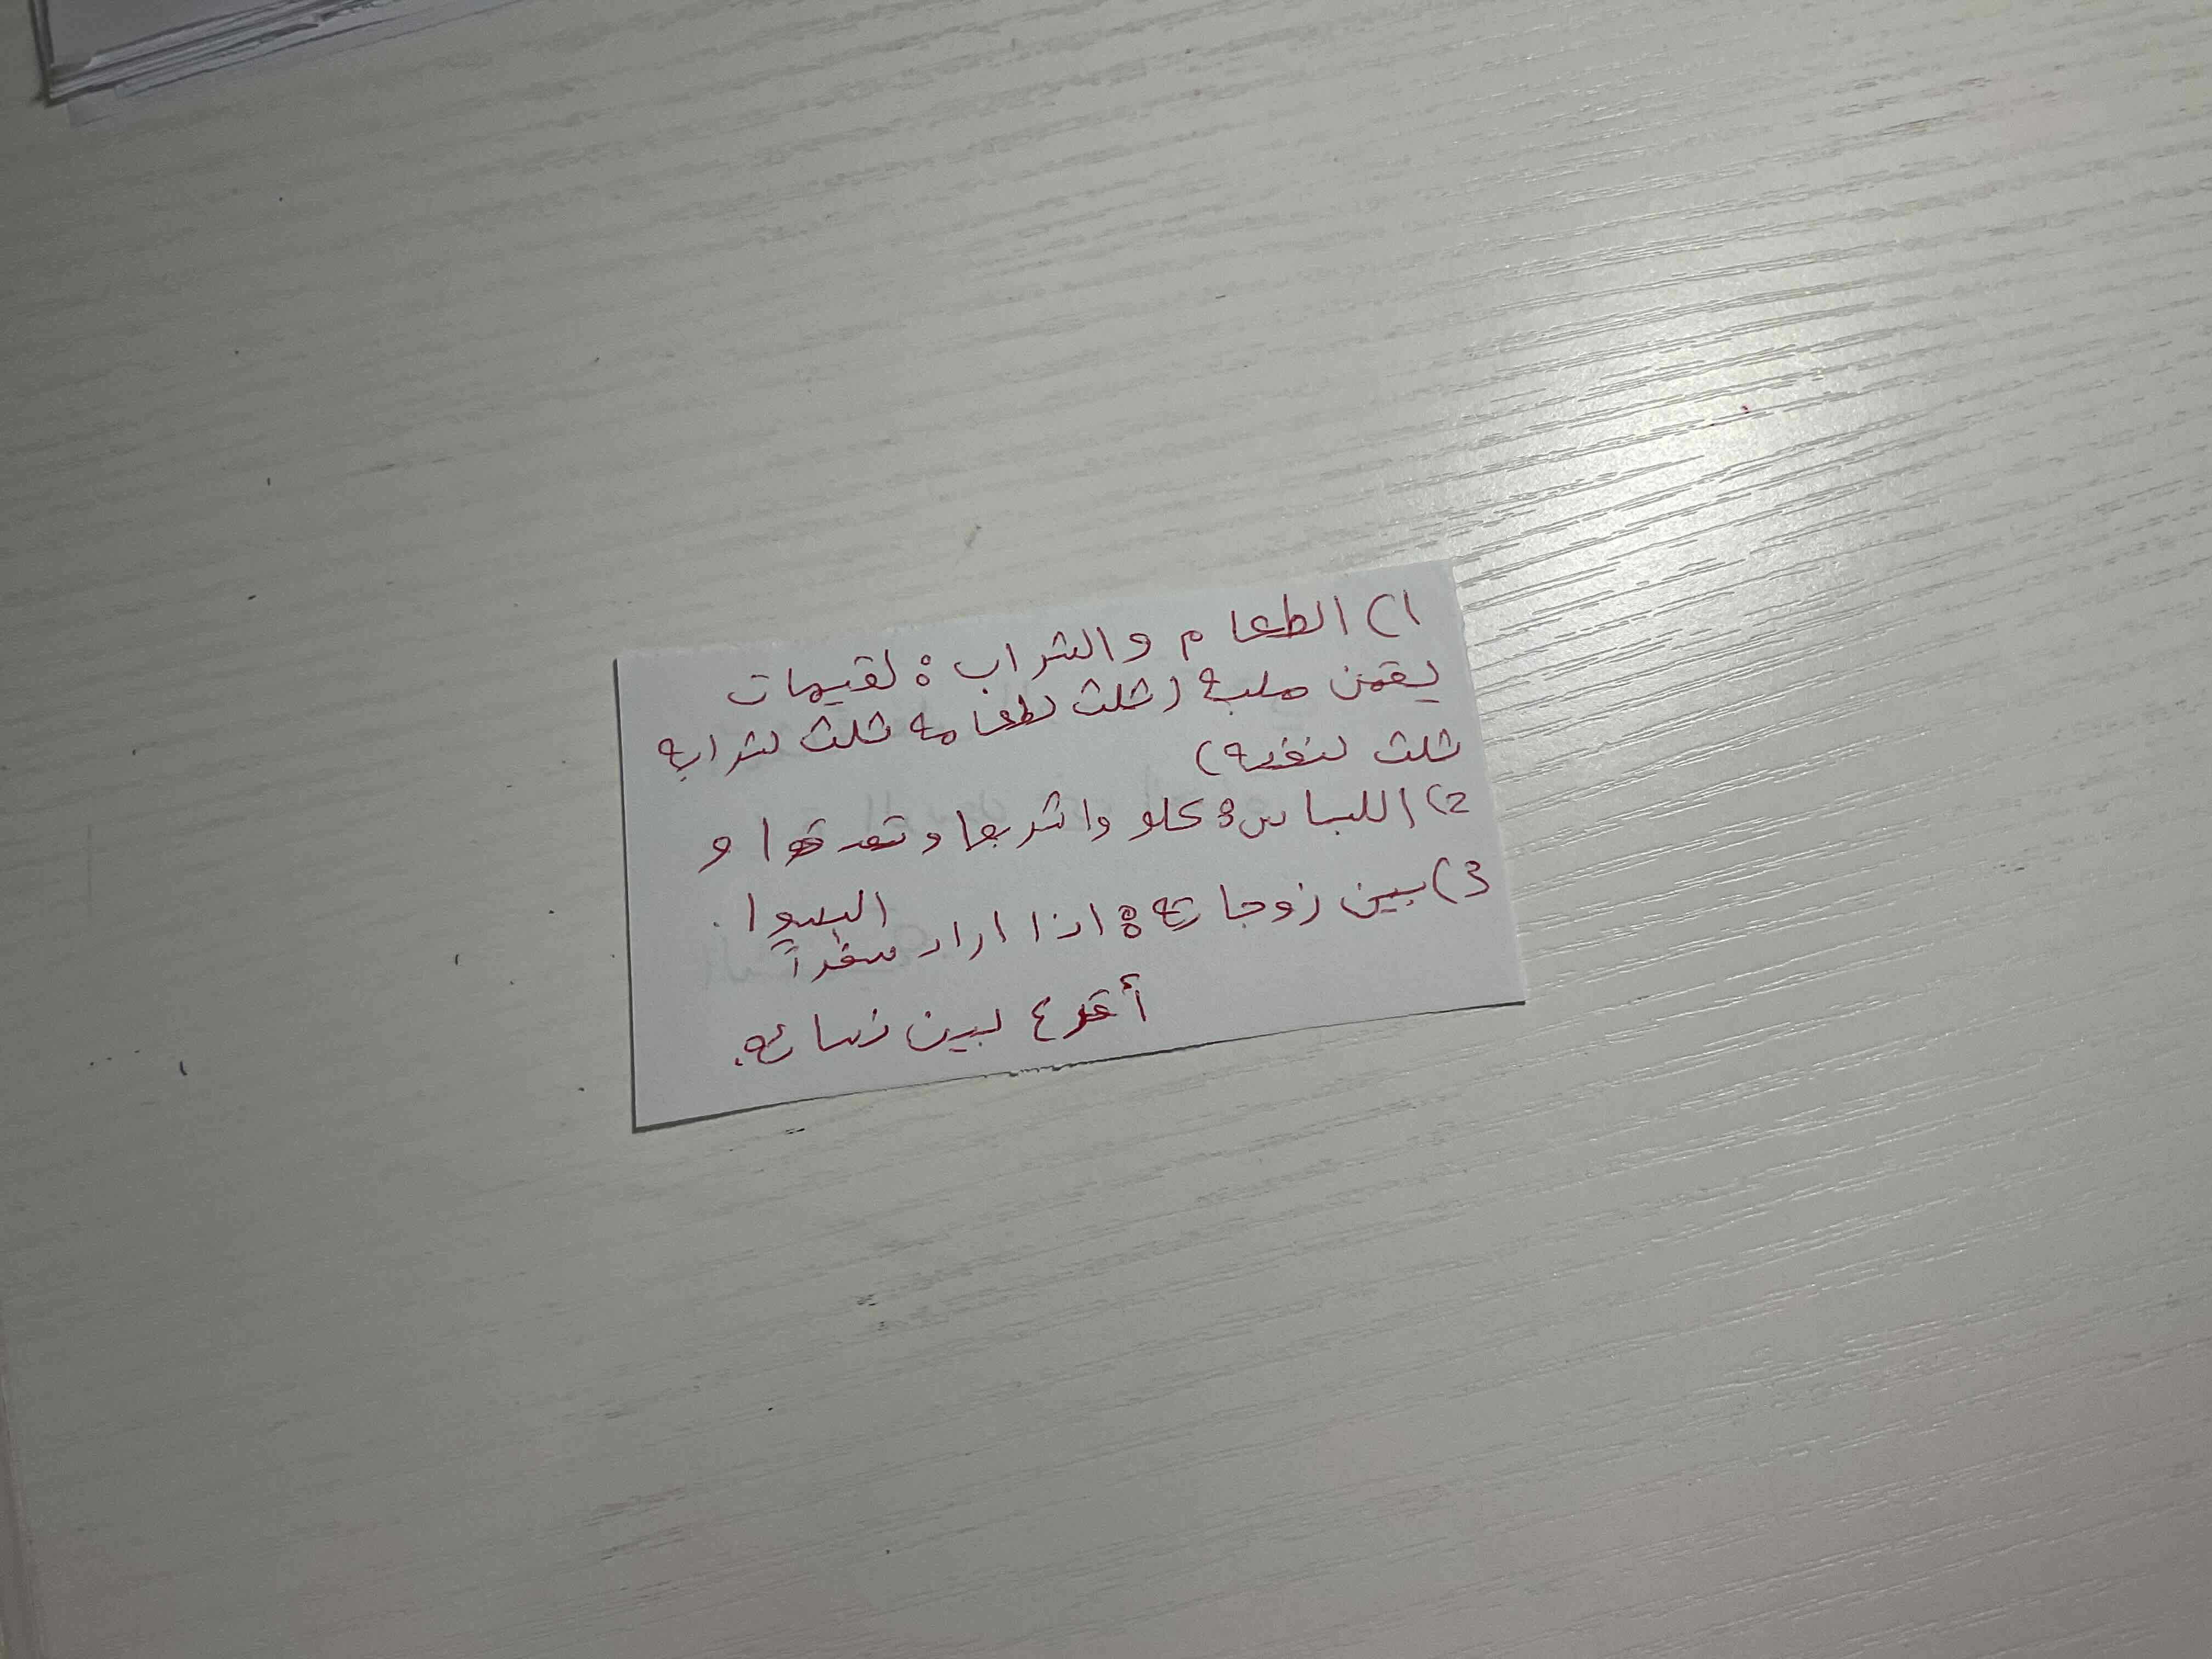 1) الطعام والشراب: لقيمات
يقمن صلبه (ثلث لطعامه ثلث لشرابه
ثلث لنفسه)
2) اللباس: كلو واشربوا وتصدقوا و
البسوا.
3) بين زوجاته: اذا اراد سفراً
أقرع بين نسائه.